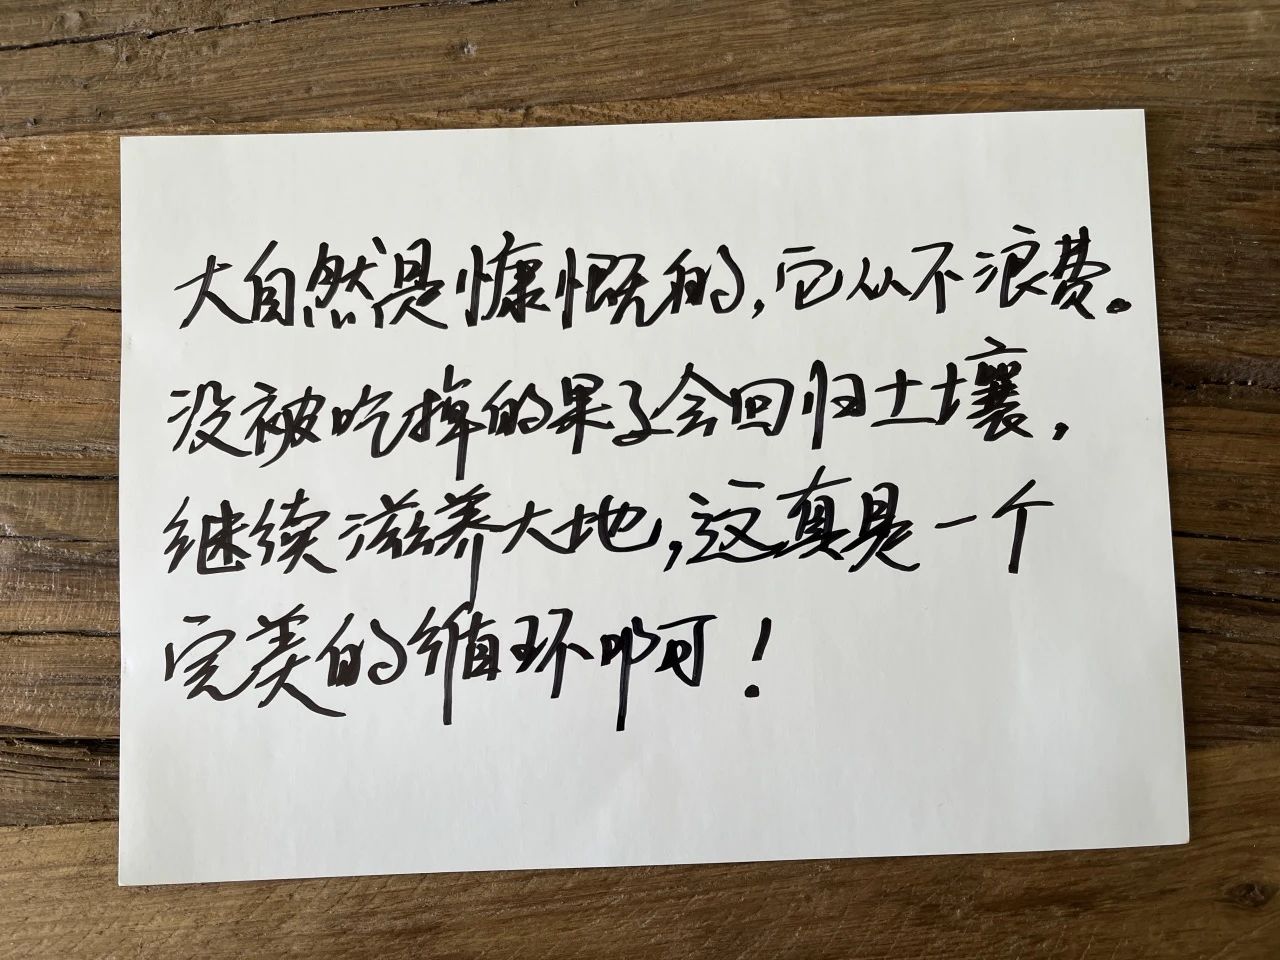 大自然是慷慨的，它从不浪费。
没被吃掉的果子会回归土壤，
继续滋养大地，这真是一个
完美的循环啊！